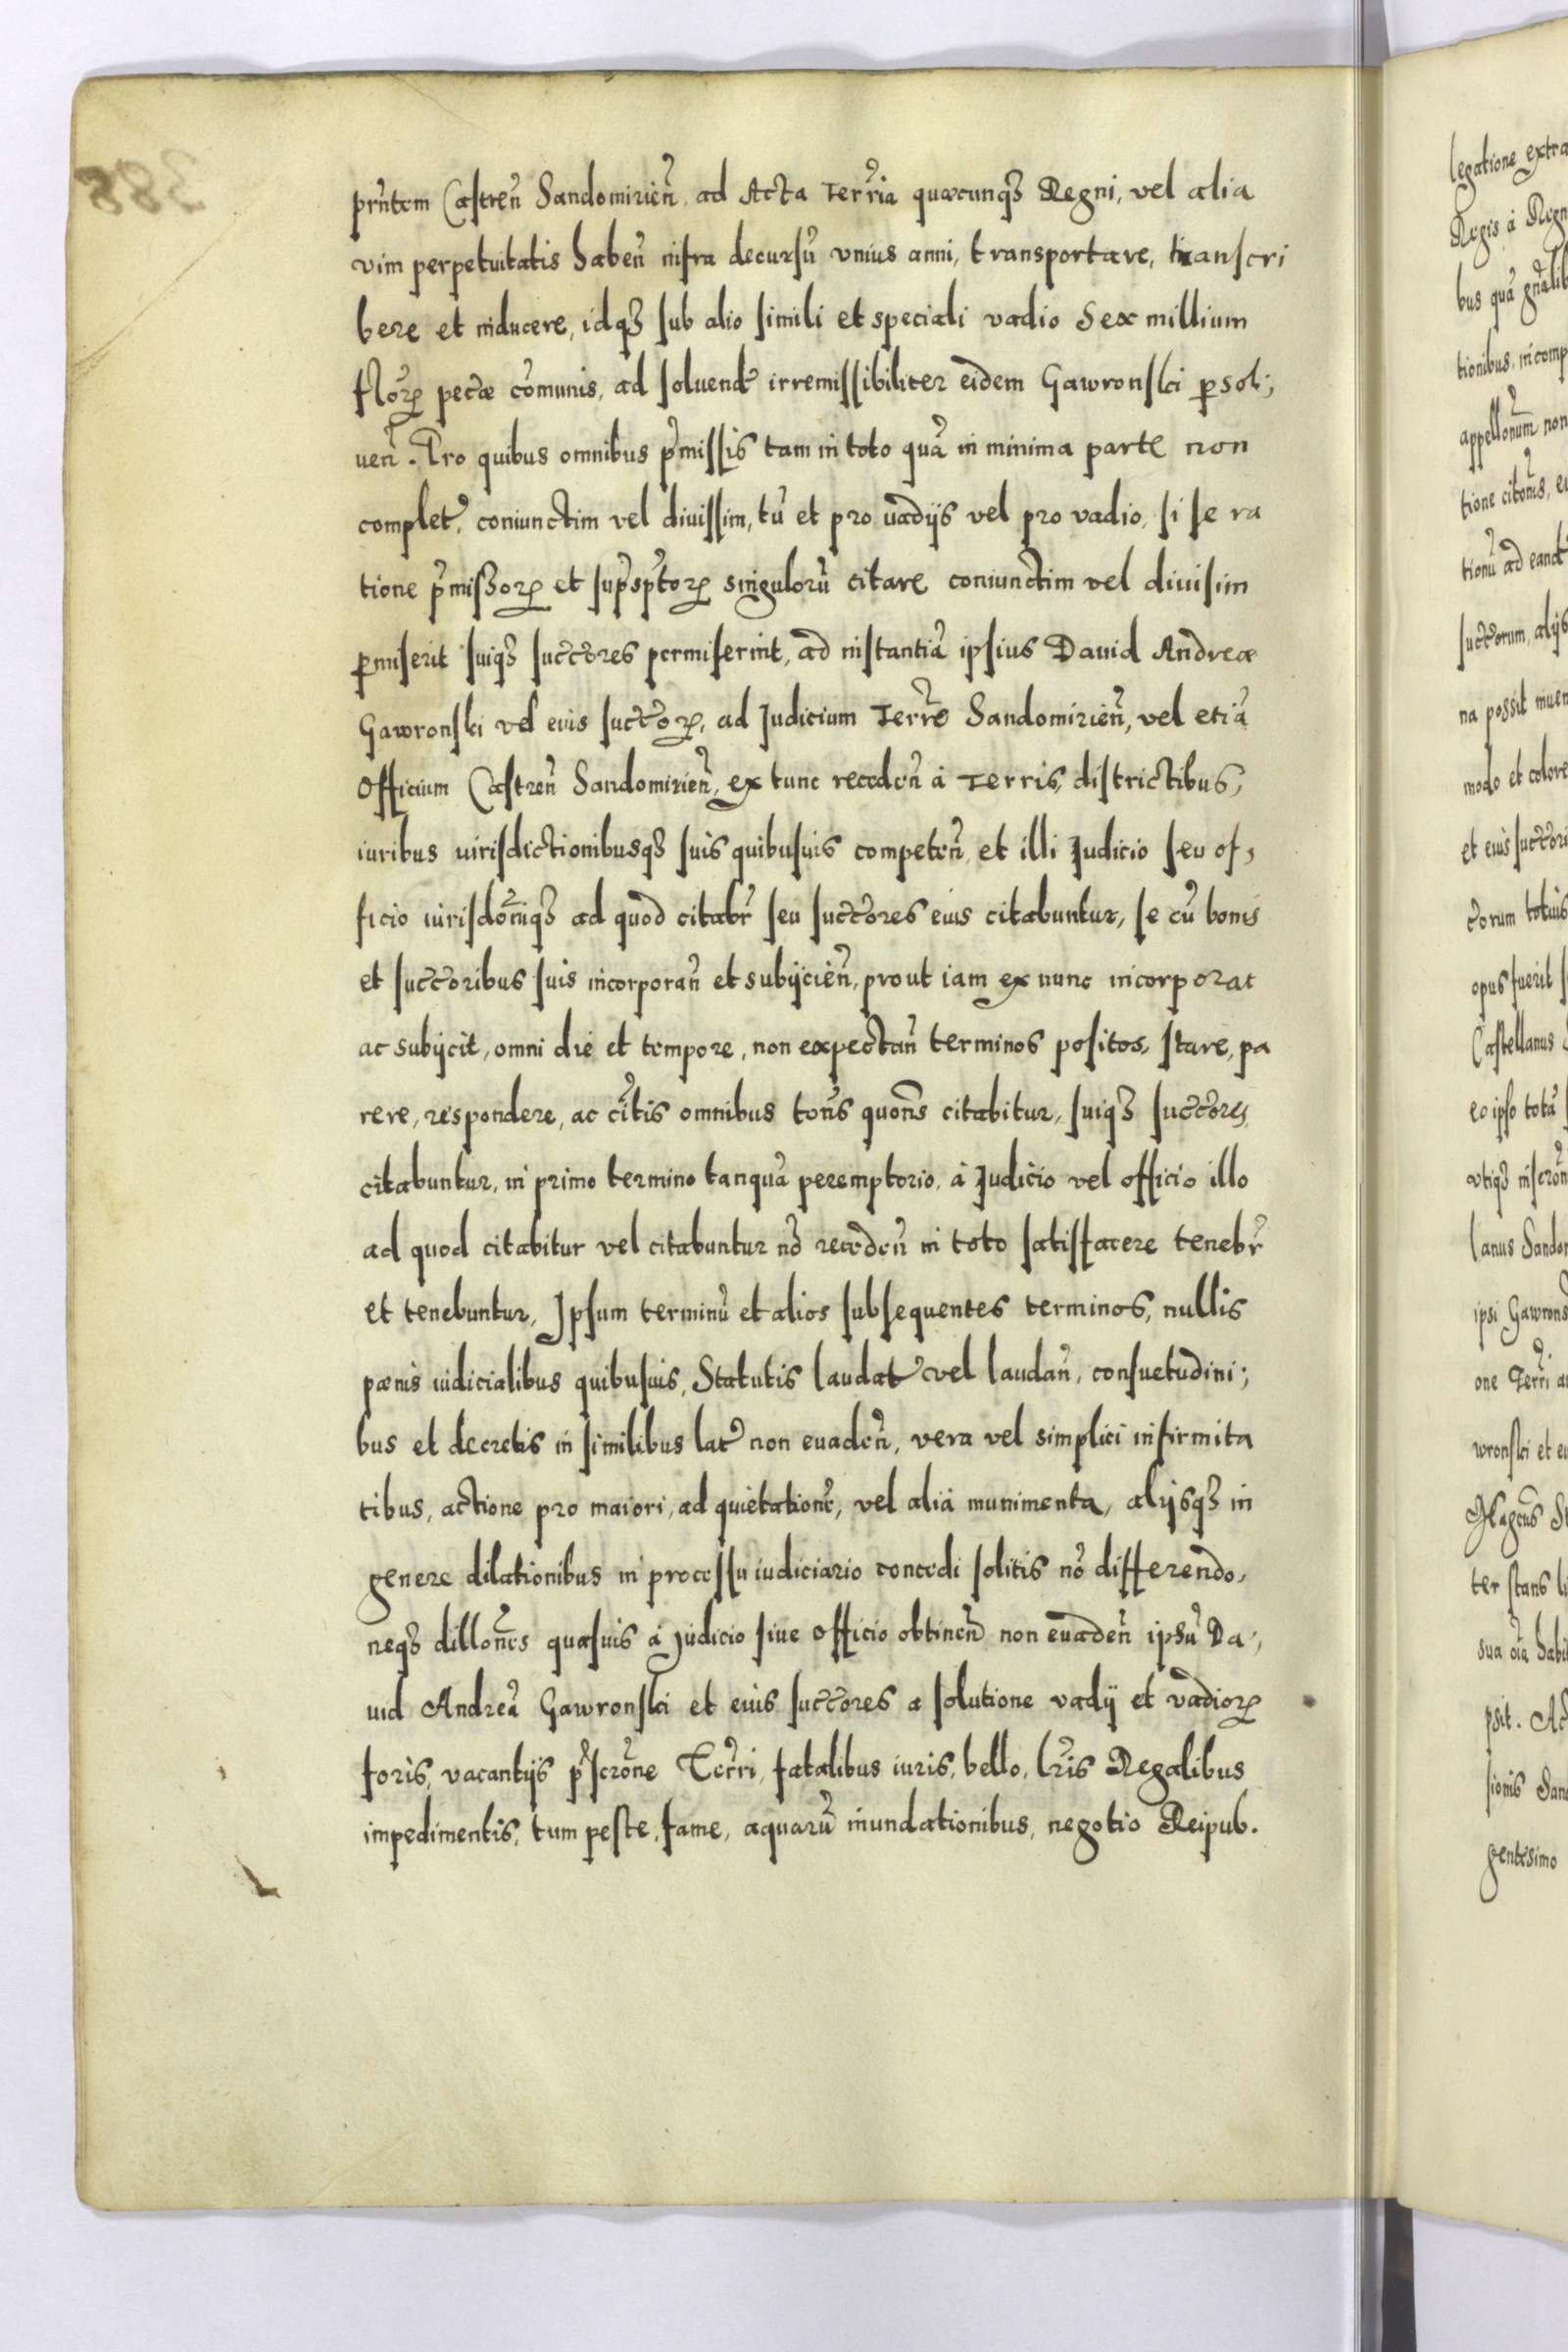 prn̄tem Castren̄ Sandomirien̄, ad Acta Terr̄ia quæcunqȝ Regni, vel alia
vim perpetuitatis haben̄ infra decursū vnius anni, transportare, transcri
bere et inducere, idqȝ sub alio simili et speciali vadio Sex millium
flor̄ꝝ pecæ cōmunis, ad soluend irremissibiliter eidem Gawronski ꝑsol;
uen̄. Pro quibus omnibus p̄missis tam in toto quā in minima parte non
complet̄, coniunctim vel diuissim, tū et pro uadijs vel pro vadio, si se ra
tione p̄missorꝝ et sup̄sp̄torꝝ singulorū citare coniunctim vel diuisim
ꝑmiserit suiqȝ succ̄ores permiserint, ad instantiā ipsius Dauid Andreæ
Gawronski vel eius succ̄orꝝ, ad Judicium Terr̄e Sandomirien̄, vel etiā
Officium Castren̄ Sandomirien̄, ex tunc receden̄ à Terris, districtibus,
iuribus iurisdictionibusqȝ suis quibusuis competen̄, et illi Judicio seu of,
ficio iurisdōniqȝ ad quod citabr̄ seu succ̄ores eius citabuntur, se cū bonis
et succ̄oribus suis incorporan̄ et subijcien̄, prout iam ex nunc incorporat
ac subijcit, omni die et tempore, non expectan̄ terminos positos, stare, pa
rere, respondere, ac c̄itis omnibus ton̄s quon̄s citabitur, suiqȝ succ̄ores
citabuntur, in primo termino tanquā peremptorio, à Judicio vel officio illo
ad quod citabitur vel citabuntur nō receden̄ in toto satisfacere tenebr̄
et tenebuntur, Ipsum terminū et alios subsequentes terminos, nullis
pænis iudicialibus quibusuis, Statutis laudat̄ vel laudan̄, consuetudini;
bus et decretis in similibus lat̄ non euaden̄, vera vel simplici infirmita
tibus, actione pro maiori, ad quietationē, vel alia munimenta, alijsqȝ in
genere dilationibus in processu iudiciario concedi solitis nō differendo,
neqȝ dillon̄es quasuis à Judicio siue Officio obtinen̄ non euaden̄ ipsū Da,
uid Andreā Gawronski et eius succ̄ores a solutione vadij et vadiorꝝ
foris, vacantijs p̄scrōne Terr̄i, fatalibus iuris, bello, lr̄is Regalibus
impedimentis, tum peste, fame, aquarū inundationibus, negotio Reipub.
legatione extra
Regis à Regn
bus quā gn̄alib
tionibus, incomp
appellonum̄ non
tione citōnis, eu
tionū ad eand
succ̄orum, alijs
na possit inuen
modo et colore
et eius succ̄ori
c̄orum totius
opus fuerit
Castellanus
eo ipso totā
vtiqȝ inscrōn
lanus Sandom
ipsi Gawrons
one Terr̄i a
wronski et eu
Magcūs St
ter stans li
sua oīa habit
psit. Ac
sionis San
gentesimo